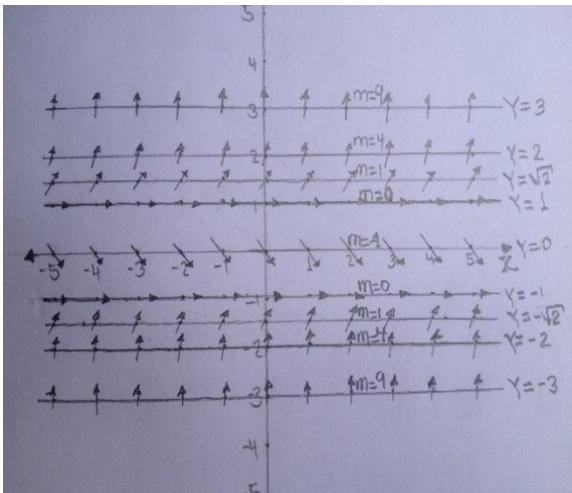 5
4
m=9
3 Y=3
m=4
2 Y=2
m=1 Y=√2
m=0
1 Y=1
m=-1 Y=0
-5 -4 -3 -2 -1 1 2 3 4 5 X
m=0
-1 Y=-1
m=1 Y=-√2
m=4
-2 Y=-2
m=9
-3 Y=-3
-4
5